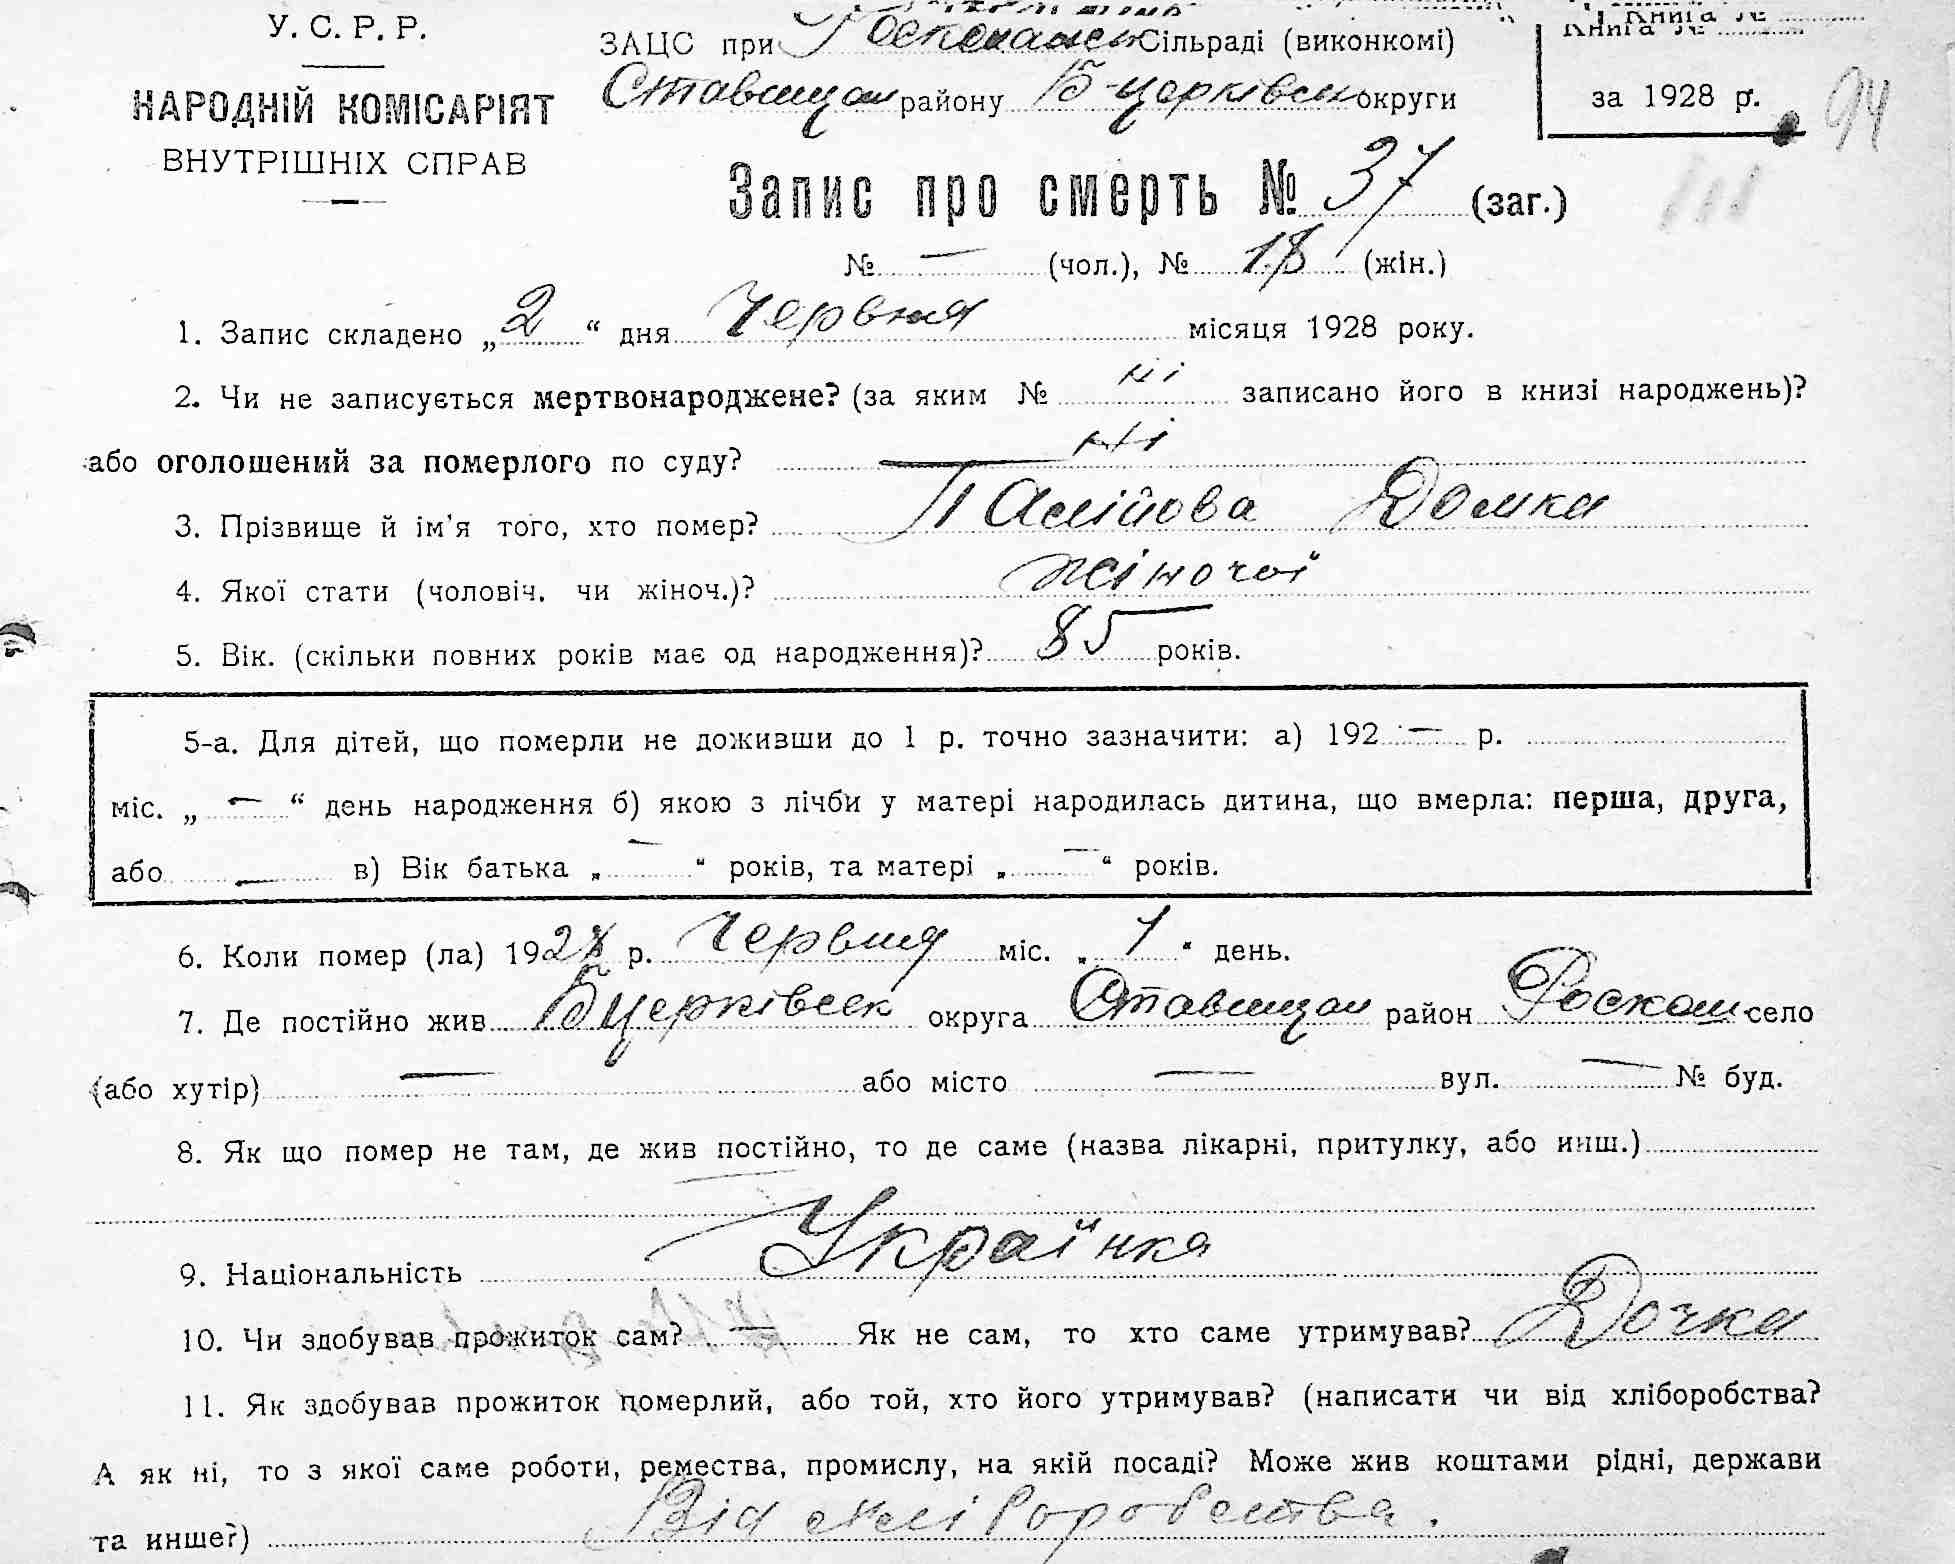 У. С. Р. Р.
НАРОДНІЙ КОМІСАРІЯТ
ВНУТРІШНІХ СПРАВ
ЗАЦС при Роскошанськ Сільраді (виконкомі)
Ставищан району Б-церківськ округи
Книга №
за 1928 р.
94
Запис про смерть № 37 (заг.)
№ — (чол.), № 18 (жін.)
1. Запис складено „2“ дня Червня місяця 1928 року.
2. Чи не записується мертвонароджене? (за яким № ні записано його в книзі народжень)?
або оголошений за померлого по суду? ні
3. Прізвище й ім'я того, хто помер? Палійова Домка
4. Якої стати (чоловіч. чи жіноч.)? жіночої
5. Вік. (скільки повних років має од народження)? 85 років.
5-а. Для дітей, що померли не доживши до 1 р. точно зазначити: а) 192 — р.
міс. „ — “ день народження б) якою з лічби у матері народилась дитина, що вмерла: перша, друга,
або — в) Вік батька „ — “ років, та матері „ — “ років.
6. Коли помер (ла) 1928 р. Червня міс. „ 1 “ день.
7. Де постійно жив Бцерківськ округа Ставищан район Роскош село
(або хутір) — або місто — вул. — № буд.
8. Як що помер не там, де жив постійно, то де саме (назва лікарні, притулку, або инш.)
9. Національність Українка
10. Чи здобував прожиток сам? — Як не сам, то хто саме утримував? Дочка
11. Як здобував прожиток померлий, або той, хто його утримував? (написати чи від хліборобства?
А як ні, то з якої саме роботи, ремества, промислу, на якій посаді? Може жив коштами рідні, держави
та инше?) Від хліборобства.